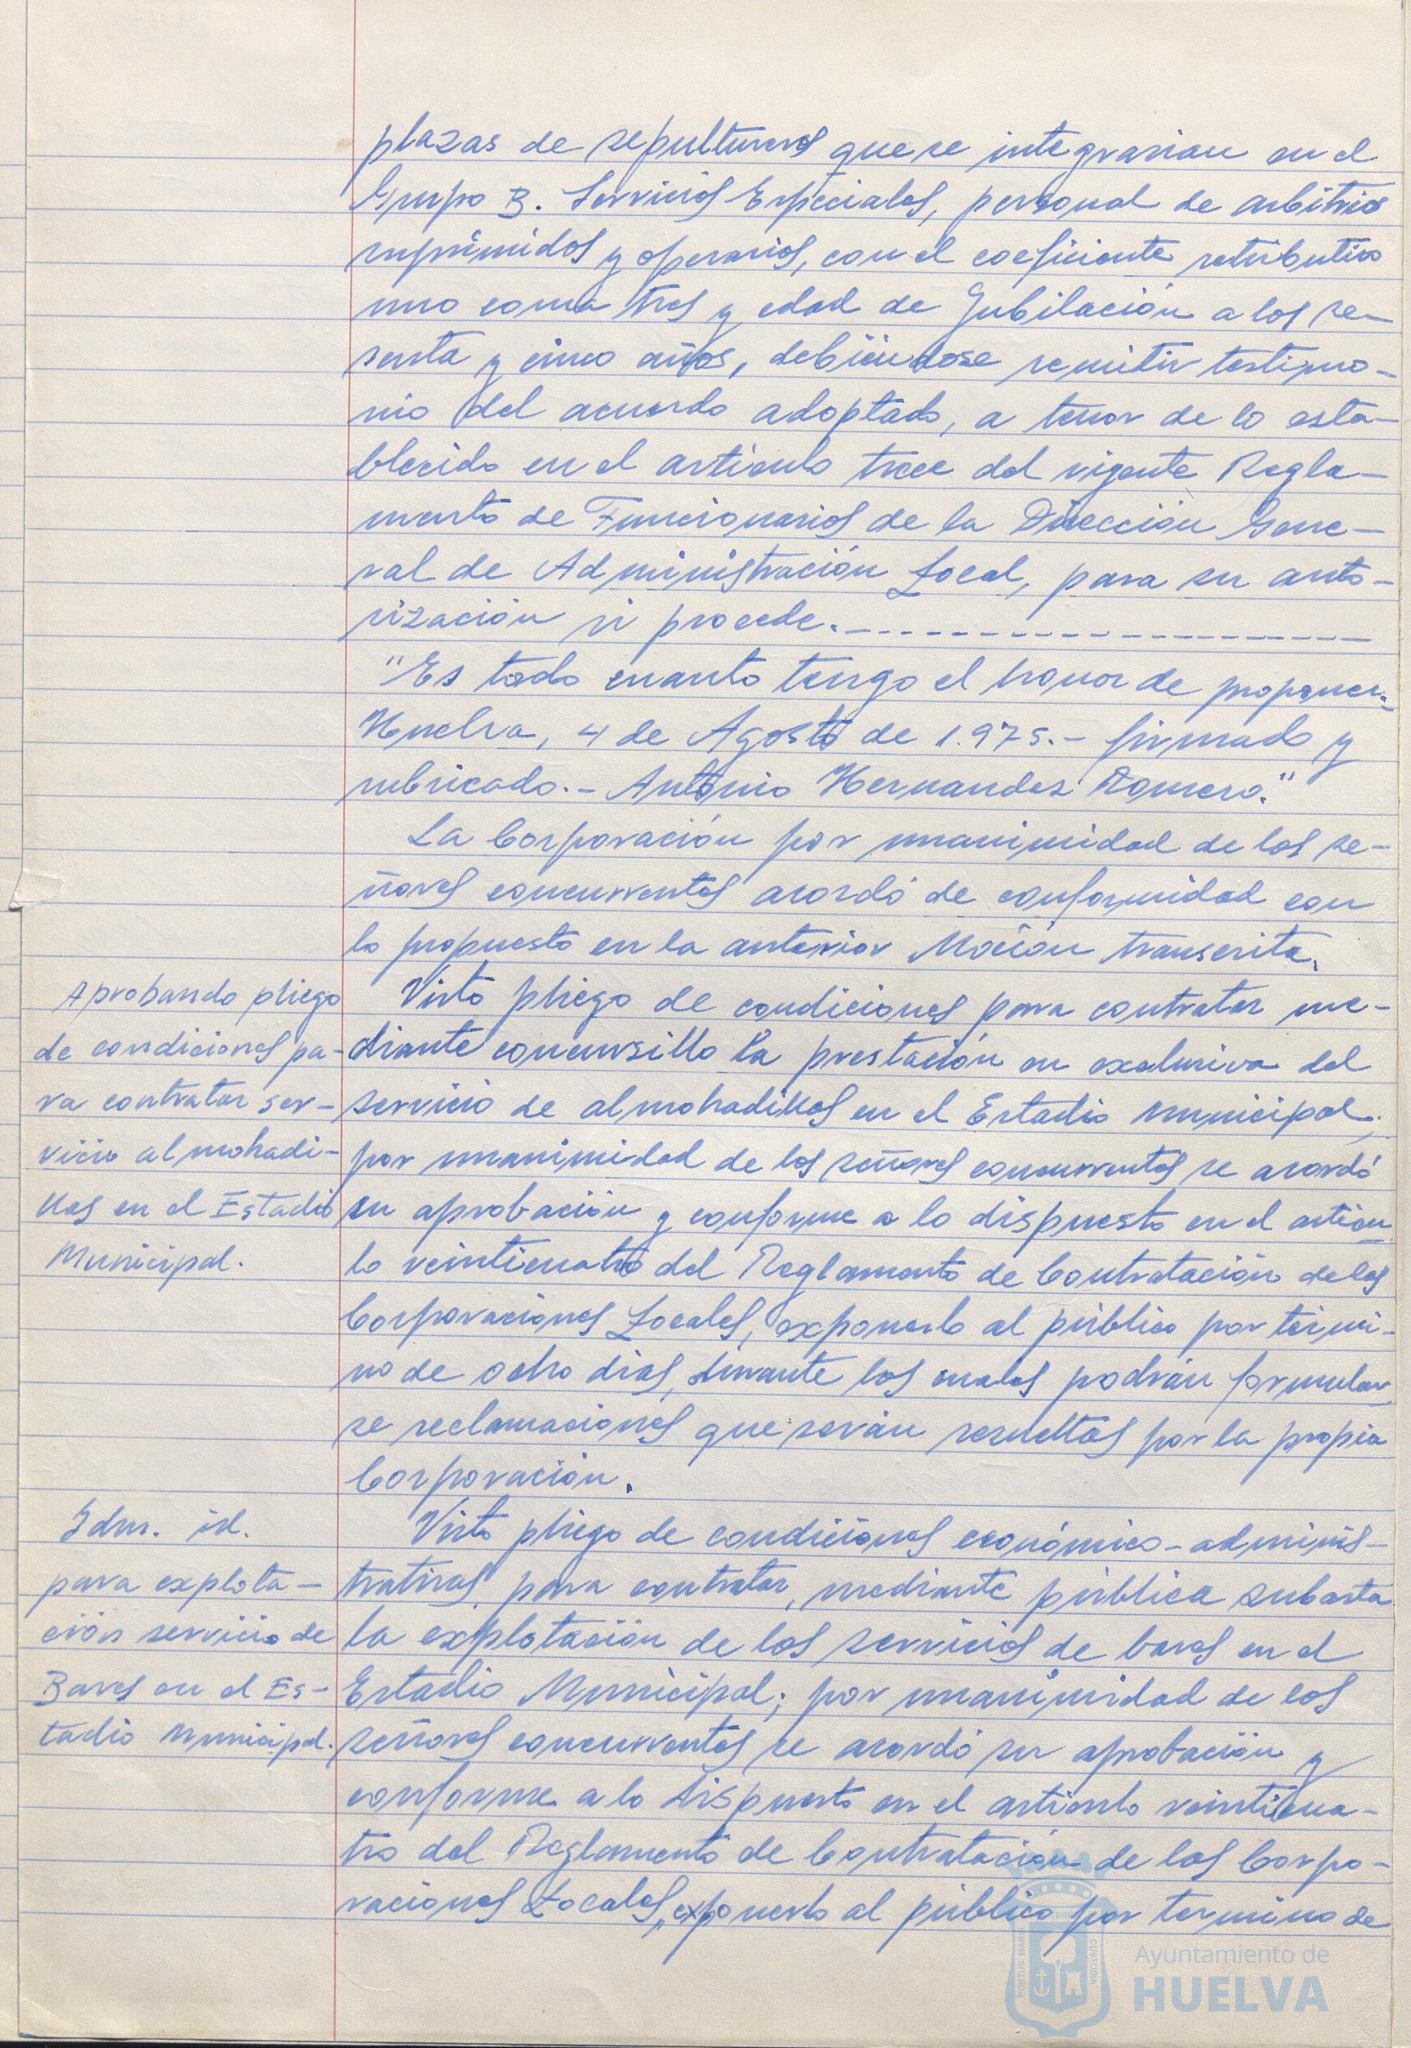 plazas de sepultureros que se integrarian en el
Grupo B. Servicios Especiales, personal de arbitrios
suprimidos y operarios, con el coeficiente retributivo
uno coma tres y edad de Jubilación a los se-
senta y cinco años, debiéndose remitir testimo-
nio del acuerdo adoptado, a tenor de lo esta-
blecido en el articulo trece del vigente Regla-
mento de Funcionarios de la Dirección Gene-
ral de Administración Local, para su auto-
rización si procede.- - - - - - - - - - - - - - - - - - -
"Es todo cuanto tengo el honor de proponer.-
Huelva, 4 de Agosto de 1.975.- firmado y
rubricado.- Antonio Hernandez Romero."
La Corporación por unanimidad de los se-
ñores concurrentes acordó de conformidad con
lo propuesto en la anterior Moción transcrita.
Aprobando pliego
de condiciones pa-
ra contratar ser-
vicio almohadi-
llas en el Estadio
Municipal.
Visto pliego de condiciones para contratar me-
diante concursillo la prestación en exclusiva del
servicio de almohadillas en el Estadio Municipal,
por unanimidad de los señores concurrentes se acordó
su aprobación y conforme a lo dispuesto en el articu
lo veinticuatro del Reglamento de Contratación de las
Corporaciones Locales, exponerlo al público por térmi-
no de ocho dias, durante los cuales podrán formular
se reclamaciones que serán resueltas por la propia
Corporación.
Idm. id.
para explota-
ción servicio de
Bares en el Es-
tadio Municipal.
Visto pliego de condiciones económico-adminis-
trativas para contratar, mediante pública subasta
la explotación de los servicios de bares en el
Estadio Municipal; por unanimidad de los
señores concurrentes se acordó su aprobación y
conforme a lo dispuesto en el articulo veinticua-
tro del Reglamento de Contratación de las Corpo-
raciones Locales, exponerlo al público por termino de
Ayuntamiento de
HUELVA